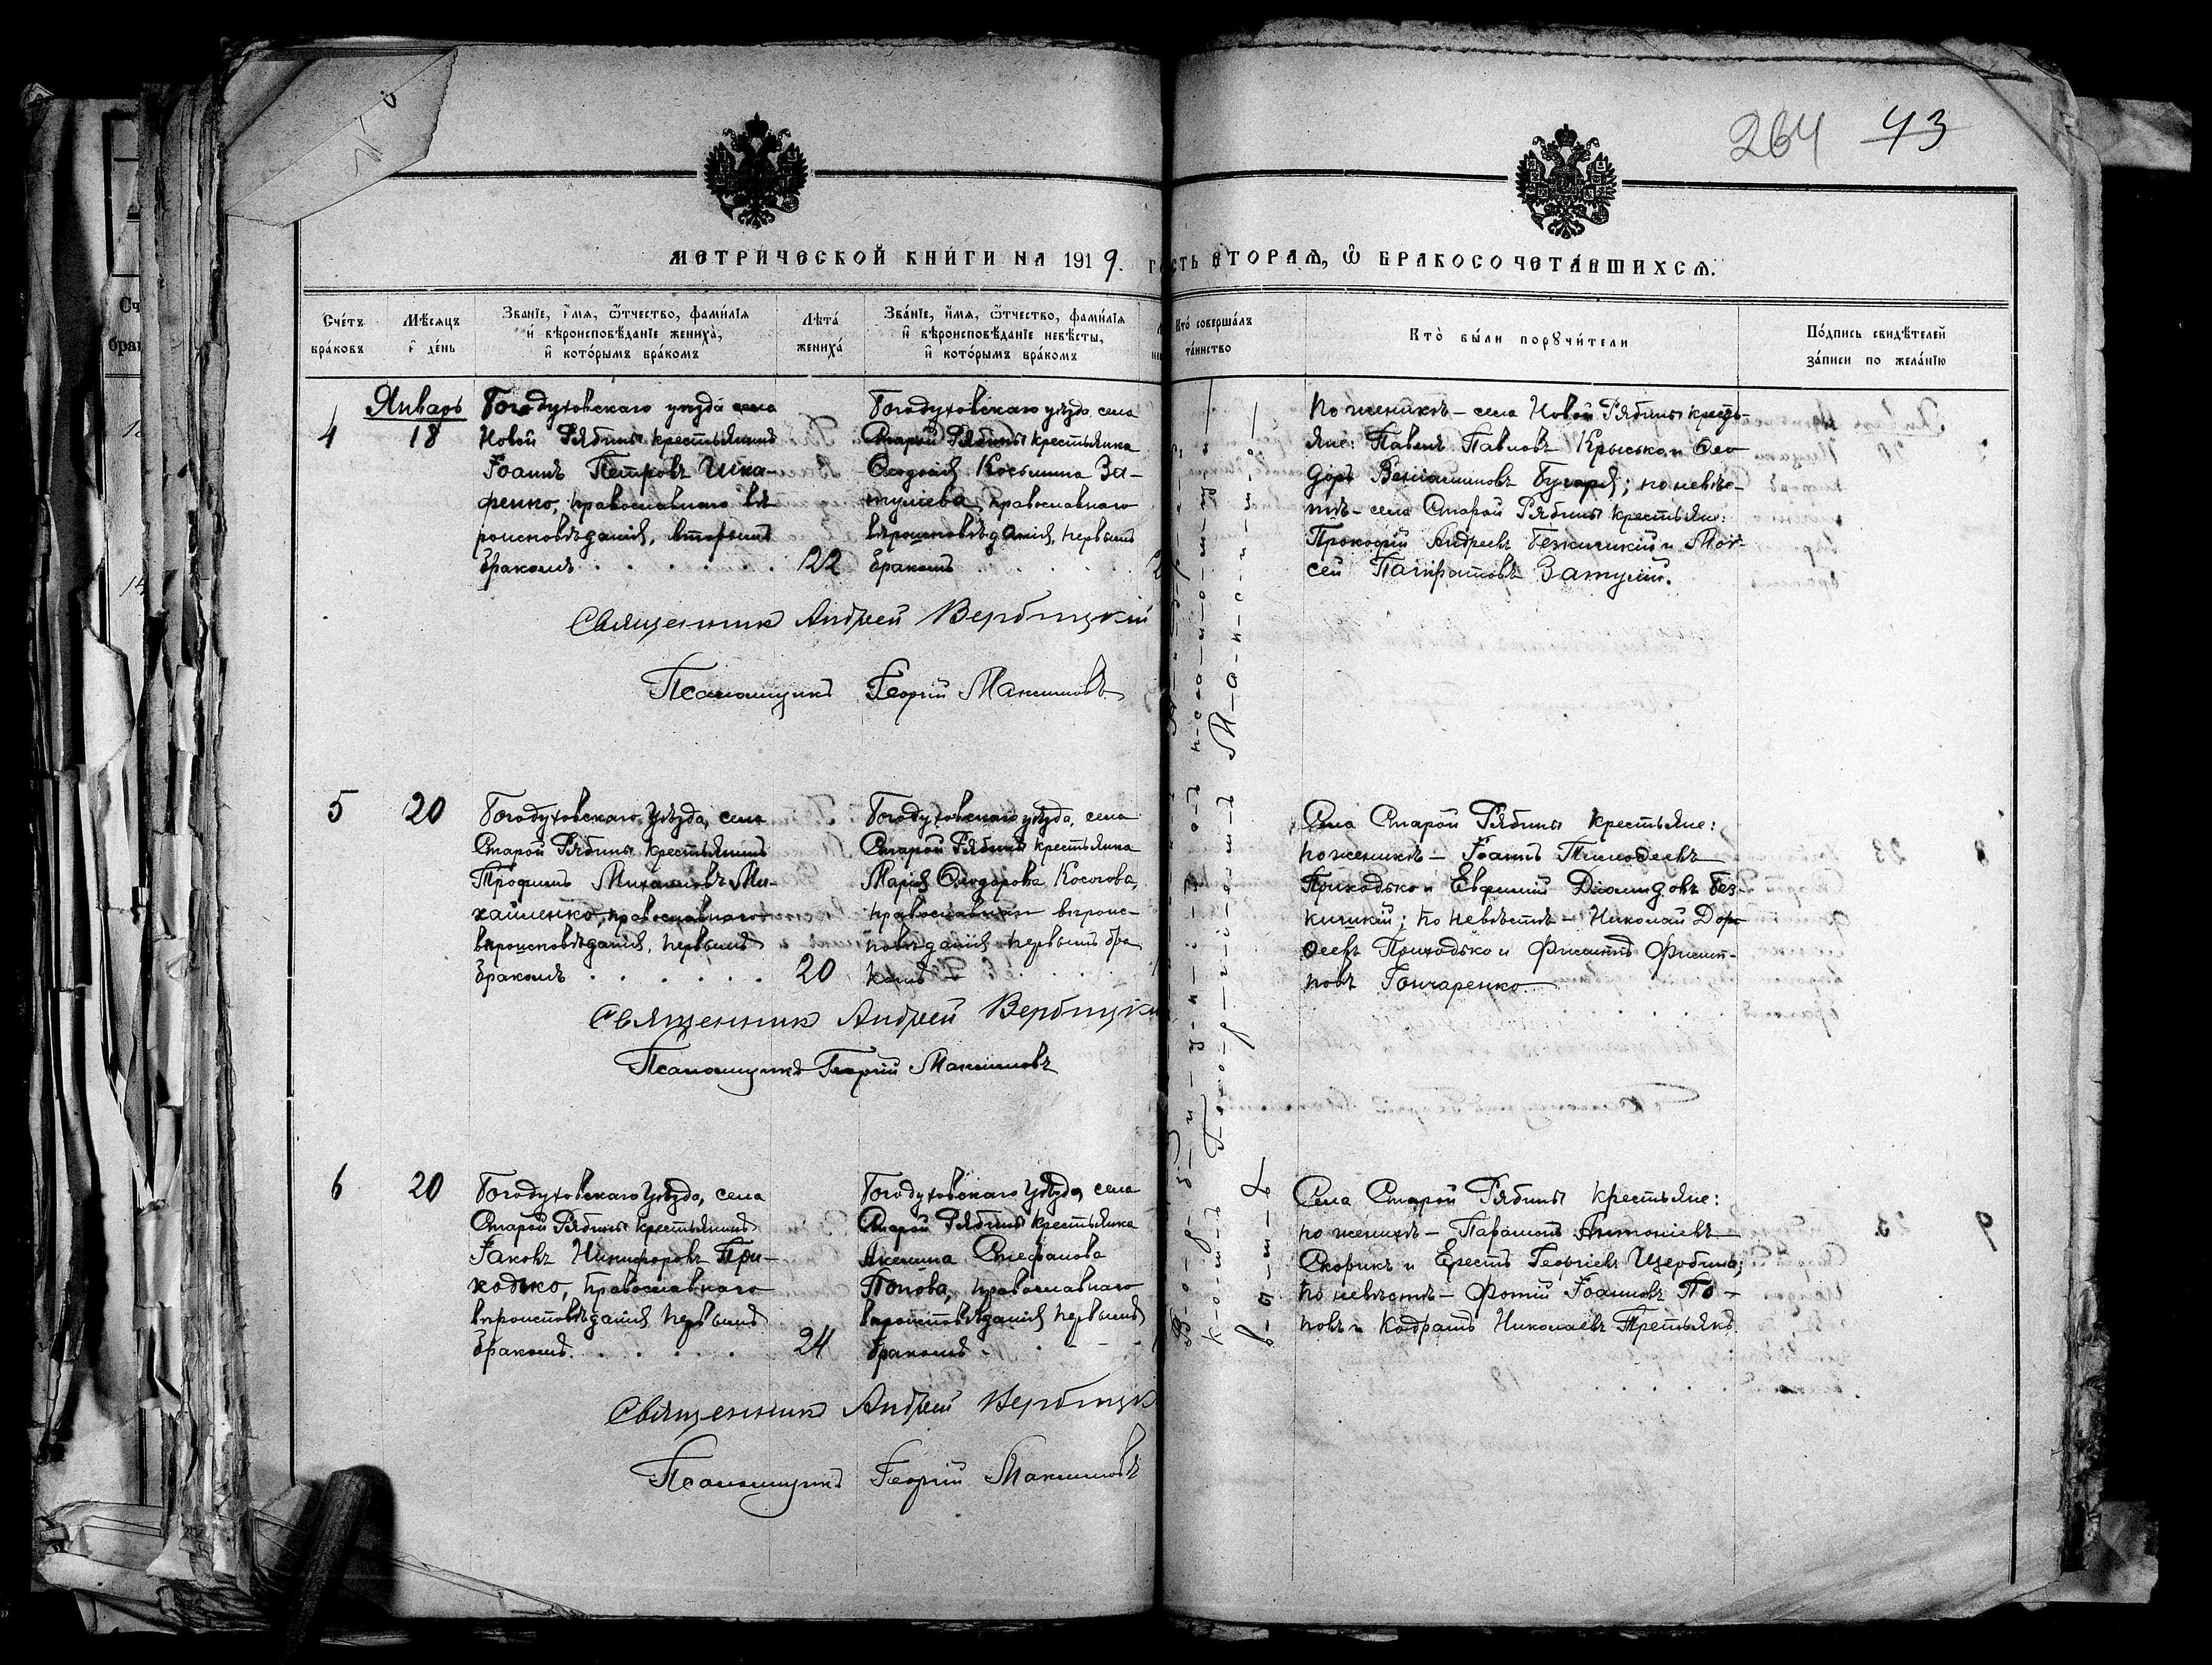 264 43
МЕТРИ́ЧЕСКОЙ КНИ́ГИ НА 1919. ГО
СТЬ ВТОРАѦ, Ѽ БРАКОСОЧЕТА́ВШИХСѦ.
Сче́тъ бра́ковъ
Мѣ́сяцъ и де́нь
Зва́нїе, и́мѧ, ѻ́тчество, фами́лїѧ и вѣроисповѣ́данїе жениха̀, и кото́рымъ бра́комъ
Лѣта̀ жениха̀
Зва́нїе, и́мѧ, ѻ́тчество, фами́лїѧ и вѣроисповѣ́данїе невѣ́сты, и кото́рымъ бра́комъ
Кто̀ соверша́лъ та́инство
Кто̀ бы́ли порꙋчи́тели
По́дпись свидѣ́телей за́писи по жела́нїю
Январь
4
18
Богодуховскаго уѣзда села
Новой Рябины крестьянинъ
Іоаннъ Петровъ Шка-
фенко, православнаго вѣ-
роисповѣданія, вторымъ
бракомъ
22
Богодуховскаго уѣзда, села
Старой Рябины крестьянка
Космина За-
православнаго
вѣроисповѣданія, первымъ
бракомъ
По женихѣ – села Новой Рябины кресть-
яне: Павелъ Павловъ Крысько и Ѳео-
доръ Веніаминовъ Бугаръ; по невѣс-
тѣ – села Старой Рябины крестьяне:
Прокофій Андреевъ Безкишкій и Мои-
сей Панкратовъ Затулій.
Священникъ Андрей Вербицкій
Псаломщикъ Георгій Максимовъ
5
20
Богодуховскаго уѣзда, села
Старой Рябины крестьянинъ
Трофимъ Михаиловъ Ми-
хайленко, православнаго
вѣроисповѣданія, первымъ
бракомъ
20
Богодуховскаго уѣзда, села
Старой Рябины крестьянка
Марія Ѳеодорова Косогова,
православнаго вѣроис-
повѣданія первымъ бра
комъ
Села Старой Рябины крестьяне:
по женихѣ – Іоаннъ Тимоѳеевъ
Приходько и Евфимій Діомидовъ Без-
кишкій; по невѣстѣ – Николай Доро-
ѳеевъ Приходько и Филиппъ Филип-
повъ Гончаренко
Священникъ Андрей Вербицкі
Псаломщикъ Георгій Максимовъ
6
20
Богодуховскаго уѣзда, села
Старой Рябины крестьянинъ
Іаковъ Никифоровъ При-
ходько, православнаго
вѣроисповѣданія первымъ
бракомъ
24
Богодуховскаго уѣзда, села
Старой Рябины крестьянка
Акилина Стефанова
Попова, православнаго
вѣроисповѣданія первымъ
бракомъ
Села Старой Рябины крестьяне:
по женихѣ – Парамонъ Антоніевъ
Скорикъ и Ерестъ Георгіевъ Щербина;
по невѣстѣ – Фотій Іоанновъ По-
повъ и Кодратъ Николаевъ Третьякъ.
Священникъ Андрей Вербицк
Псаломщикъ Георгій Максимовъ